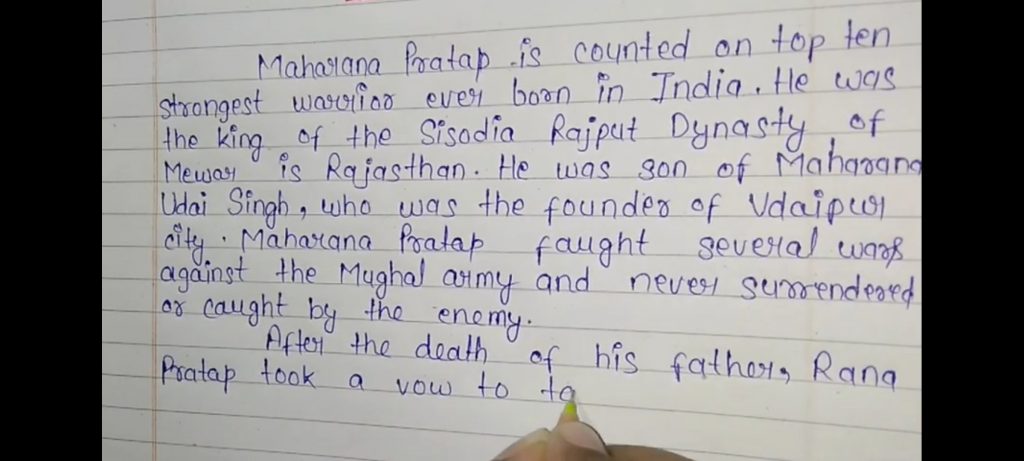 Maharana Pratap is counted on top ten
strongest warrior ever born in India. He was
the king of the Sisodia Rajput Dynasty of
Mewar is Rajasthan. He was son of Maharana
Udai Singh, who was the founder of Udaipur
city. Maharana Pratap faught several wars
against the Mughal army and never surrendered
or caught by the enemy.
After the death of his father, Rana
Pratap took a vow to ta